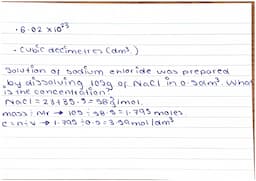 · 6.02 x 10²³
· Cubic decimetres (dm³)
Solution of sodium chloride was prepared
by dissolving 105g of NaCl in 0.5dm³. What
is the concentration?
NaCl = 23+35.5 = 58.5/mol.
mass ÷ Mr → 105 ÷ 58.5 = 1.795 moles
c = n ÷ v → 1.795 ÷ 0.5 = 3.59 mol/dm³